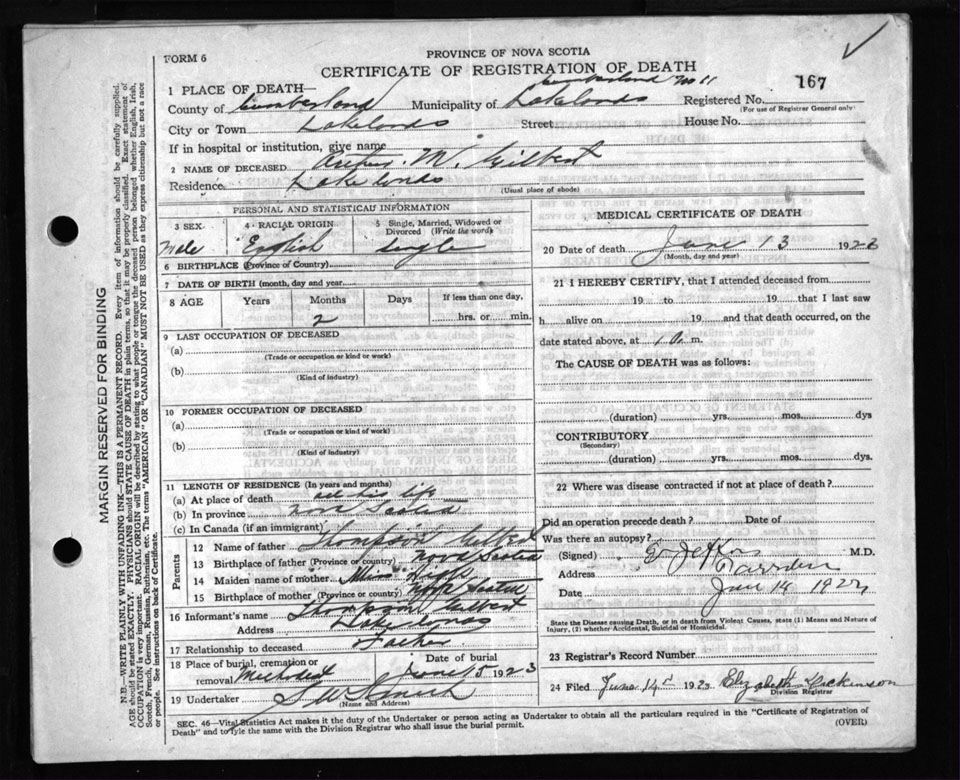 FORM 6
PROVINCE OF NOVA SCOTIA
CERTIFICATE OF REGISTRATION OF DEATH
167
1 PLACE OF DEATH—
Cumberland No 11
County of Cumberland Municipality of Lakelands Registered No.
(For use of Registrar General only)
City or Town Lakelands Street House No.
If in hospital or institution, give name
2 NAME OF DECEASED M. Gilbert
Residence Lakelands
(Usual place of abode)
PERSONAL AND STATISTICAL INFORMATION
3 SEX 4 RACIAL ORIGIN 5 Single, Married, Widowed or Divorced (Write the word)
Male English single
6 BIRTHPLACE (Province of Country)
7 DATE OF BIRTH (month, day and year)
8 AGE Years Months Days If less than one day,
2 hrs. or min.
9 LAST OCCUPATION OF DECEASED
(a)
(Trade or occupation or kind or work)
(b)
(Kind of industry)
10 FORMER OCCUPATION OF DECEASED
(a)
(Trade or occupation or kind of work)
(b)
(Kind of industry)
11 LENGTH OF RESIDENCE (In years and months)
(a) At place of death all his life
(b) In province Nova Scotia
(c) In Canada (if an immigrant)
Parents
12 Name of father Thompson Gilbert
13 Birthplace of father (Province or country) Nova Scotia
14 Maiden name of mother
15 Birthplace of mother (Province or country) Nova Scotia
16 Informant's name Thompson Gilbert
Address Lakelands
17 Relationship to deceased Father
18 Place of burial, cremation or removal Date of burial
June 15 1923
19 Undertaker
(Name and Address)
MEDICAL CERTIFICATE OF DEATH
20 Date of death June 13 192
(Month, day and year)
21 I HEREBY CERTIFY, that I attended deceased from
19 to 19 that I last saw
h alive on 19 and that death occurred, on
date stated above, at 1 a. m.
The CAUSE OF DEATH was as follows:
(duration) yrs. mos. dys
CONTRIBUTORY
(Secondary)
(duration) yrs. mos. dys.
22 Where was disease contracted if not at place of death?
Did an operation precede death? Date of
Was there an autopsy?
(Signed) M.D.
Address
Date June 14 192
State the Disease causing Death, or in death from Violent Causes, state (1) Means and Nature of
Injury, (2) whether Accidental, Suicidal or Homicidal.
23 Registrar's Record Number
24 Filed June 14 192 Elizabeth Dickinson
Division Registrar
SEC. 46—Vital Statistics Act makes it the duty of the Undertaker or person acting as Undertaker to obtain all the particulars required in the "Certificate of Registration of
Death" and to file the same with the Division Registrar who shall issue the burial permit.
(OVER)
MARGIN RESERVED FOR BINDING
N.B.—WRITE PLAINLY WITH UNFADING INK—THIS IS A PERMANENT RECORD. Every item of information should be carefully supplied.
AGE should be stated EXACTLY. PHYSICIANS should STATE CAUSE OF DEATH in plain terms, so that it may be properly classified. Exact statement of
OCCUPATION is very important. RACIAL ORIGIN will be described by stating to what people or tongue the deceased person belonged whether English, Irish,
Scotch, French, German, Russian, Ruthenian, etc. The terms "AMERICAN" OR "CANADIAN" MUST NOT BE USED as they express citizenship but not a race
or people. See instructions on back of Certificate.